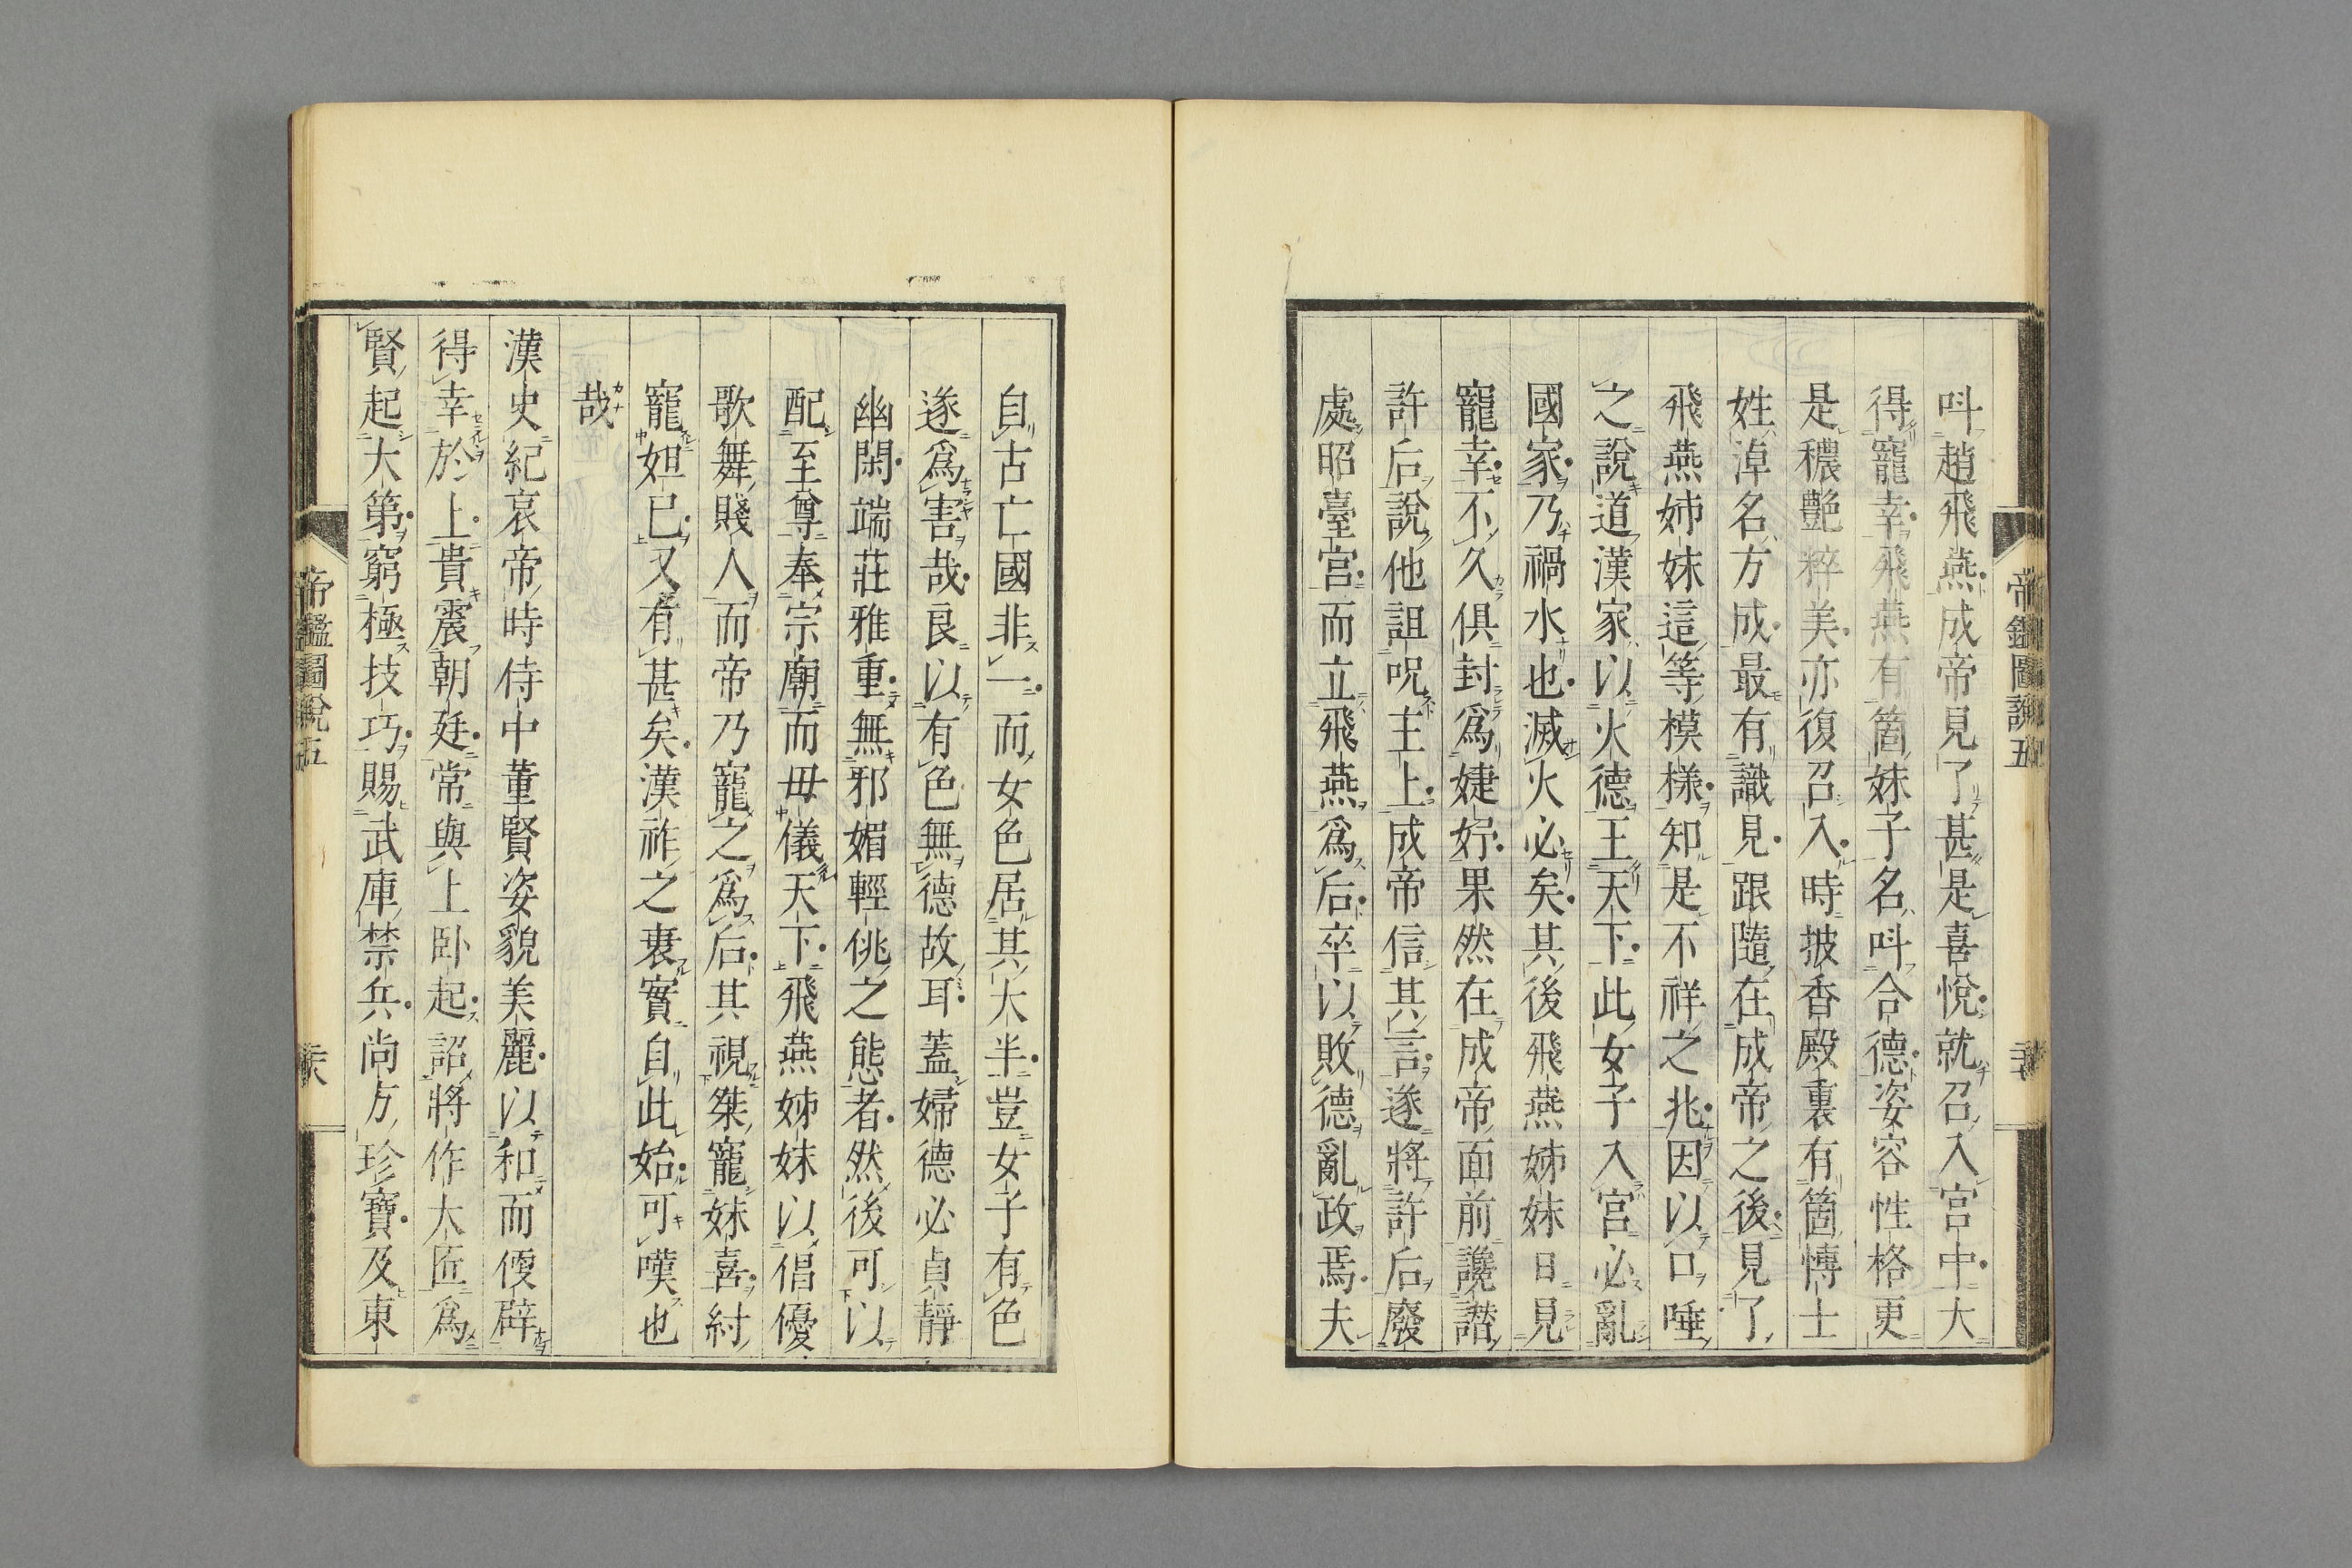 叫趙飛燕成帝見了甚是喜悅就召入宮中大
得寵幸飛燕有箇妹子名叫合德姿容性格更
是穠艶粹美亦復召入時披香殿裏有箇博士
姓淖名方成最有識見跟隨在成帝之後見了
飛燕姊妹這等模樣知是不祥之兆因以口唾
之說道漢家以火德王天下此女子入宮必亂
國家乃禍水也滅火必矣其後飛燕姊妹日見
寵幸不久俱封爲婕妤果然在成帝面前讒譖
許后說他詛呪主上成帝信其言遂將許后廢
處昭臺宮而立飛燕爲后卒以敗德亂政焉夫
帝鑑圖說五
自古亡國非一而女色居其大半豈女子有色
遂爲害哉良以有色無德故耳蓋婦德必貞靜
幽閑端莊雅重無邪媚輕佻之態者然後可以
配至尊奉宗廟而毋儀天下飛燕姊妹以倡優
歌舞賤人而帝乃寵之爲后其視桀寵妹喜紂
寵妲已又有甚矣漢祚之衰實自此始可嘆也
哉
漢史紀哀帝時侍中董賢姿貌美麗以和而便辟
得幸於上貴震朝廷常與上卧起詔將作大匠爲
賢起大第窮極技巧賜武庫禁兵尚方珍寶及東
帝鑑圖說五